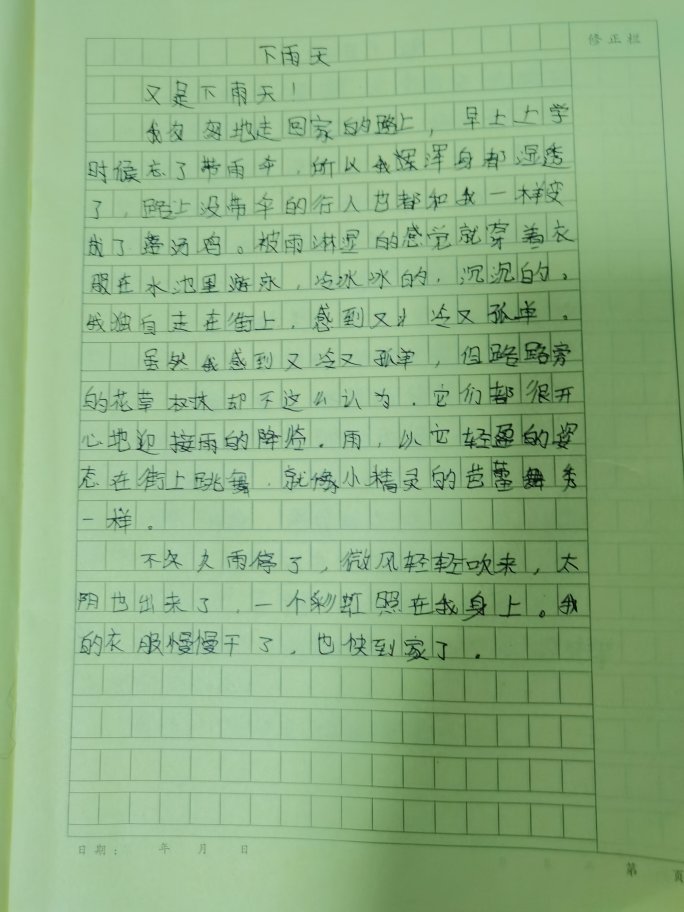 修正栏
下雨天
又是下雨天！
我匆匆地走回家的路上，早上上学
时候忘了带雨伞，所以我浑身都湿透
了，路上没带伞的行人也都和我一样变
成了落汤鸡。被雨淋湿的感觉就穿着衣
服在水池里游泳，冷冰冰的，沉沉的。
我独自走在街上，感到又冷又孤单。
虽然我感到又冷又孤单，但路旁
的花草树木却不这么认为，它们都很开
心地迎接雨的降临。雨，以它轻盈的姿
态在街上跳舞，就像小精灵的芭蕾舞秀
一样。
不久雨停了，微风轻轻吹来，太
阳也出来了，一个彩虹照在我身上。我
的衣服慢慢干了，也快到家了。
日期： 年 月 日
第 页